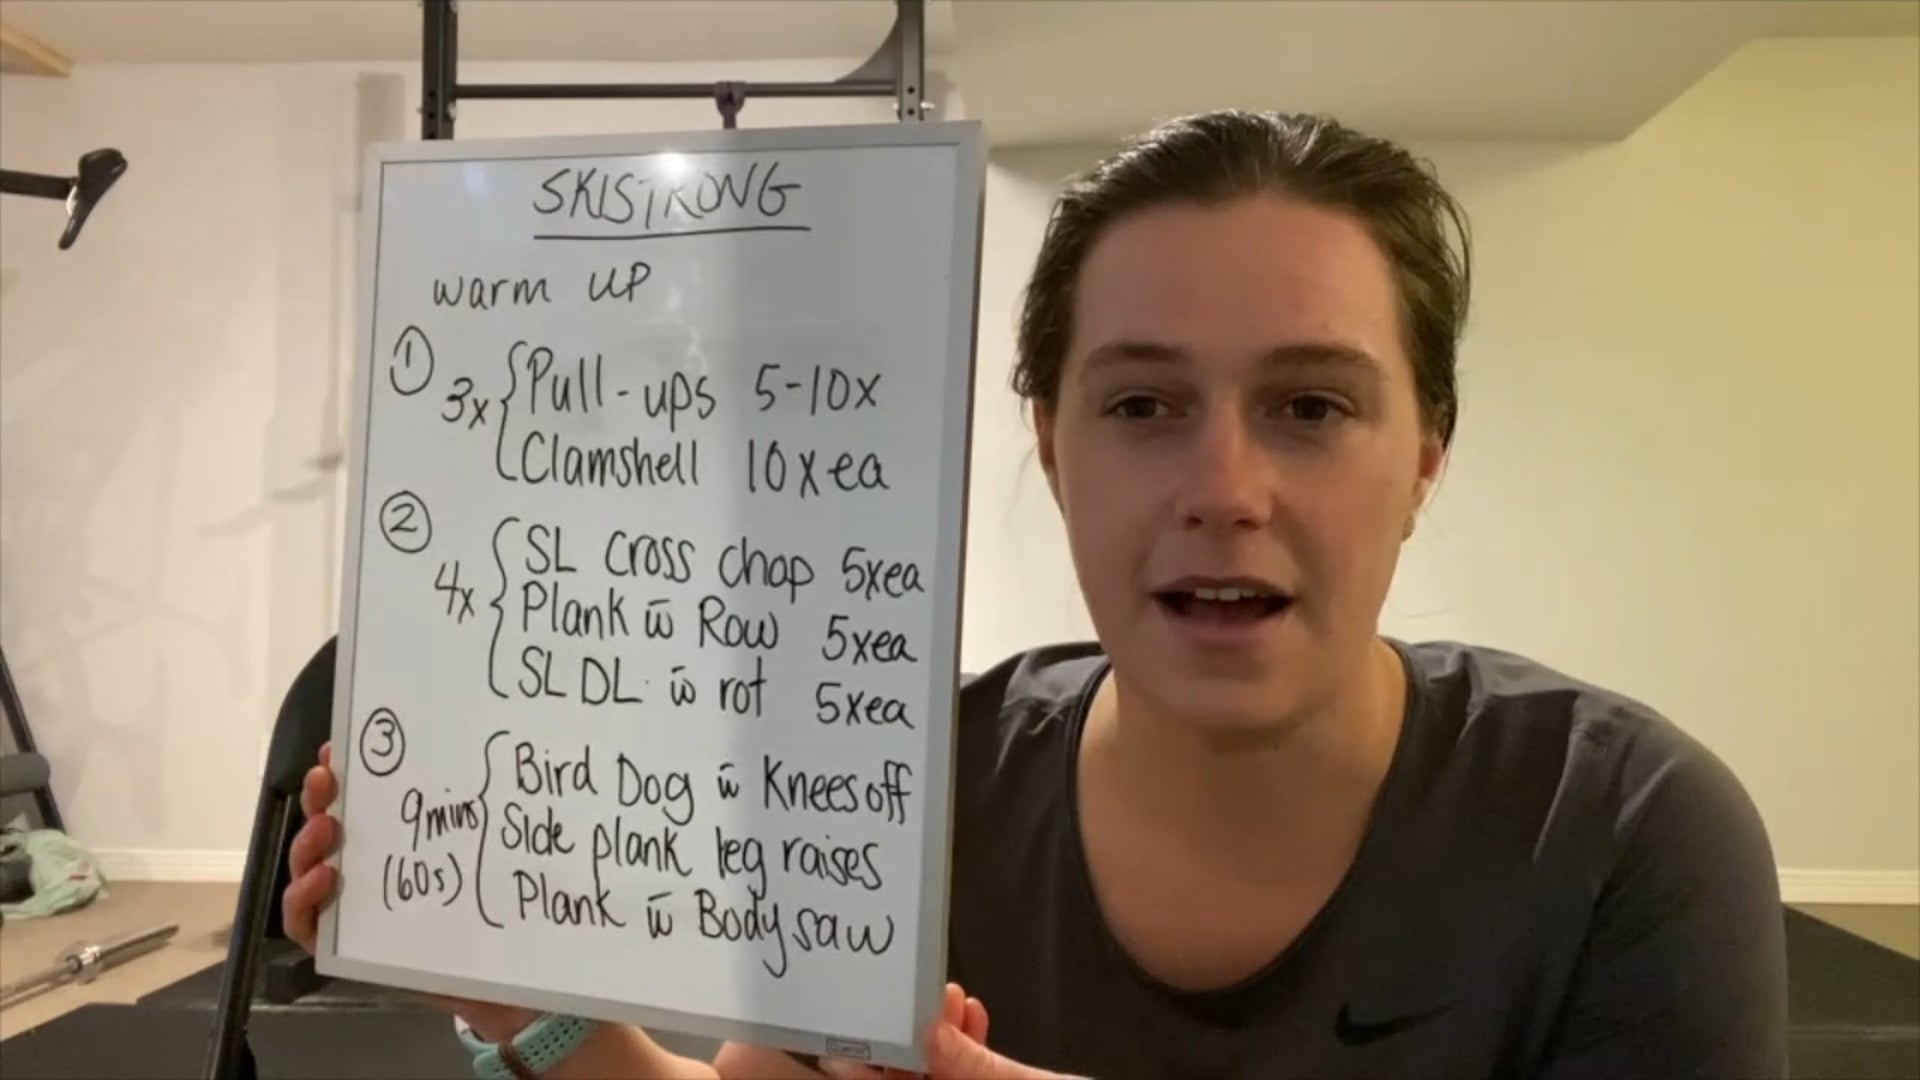 SKISTRONG
warm UP
① 3x { Pull-ups 5-10x
Clamshell 10xea
② 4x { SL cross chop 5xea
Plank w̄ Row 5xea
SL DL w̄ rot 5xea
③ 9mins (60s) { Bird Dog w̄ Knees off
Side plank leg raises
Plank w̄ Body saw